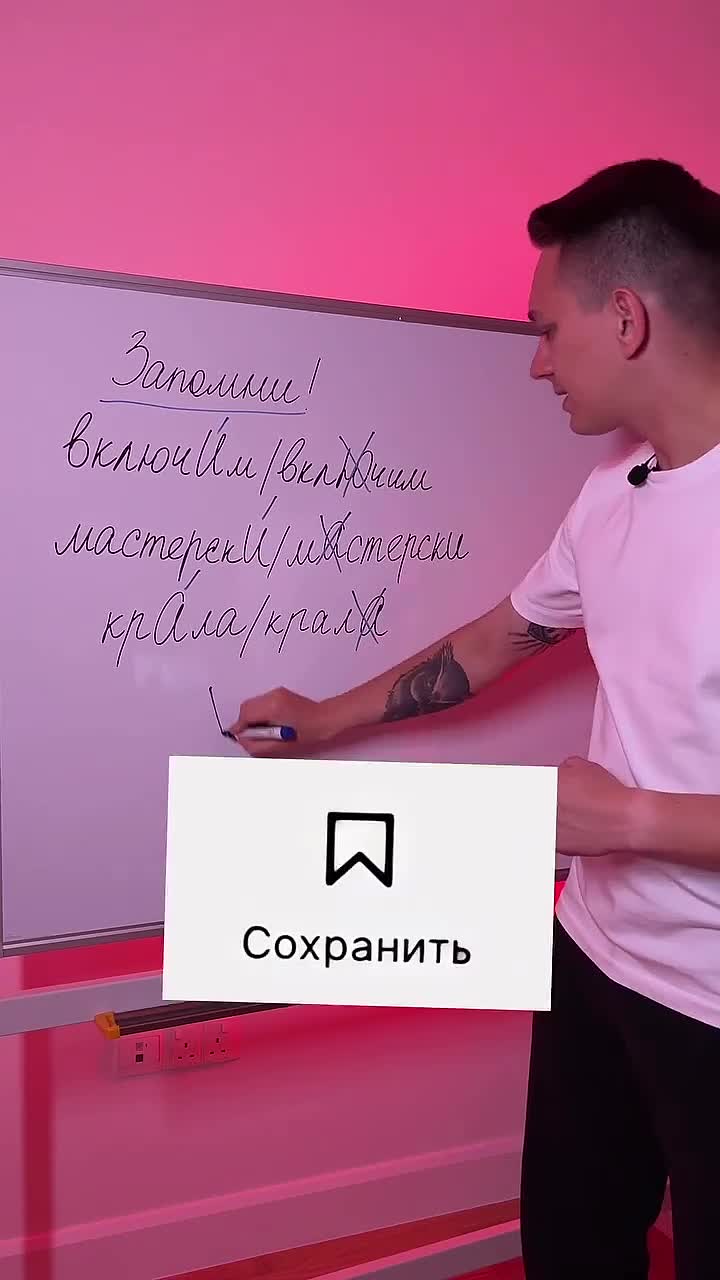 Запомни!
включИм/вклЮчим
мастерскИ/мАстерски
крАла/кралА
Сохранить